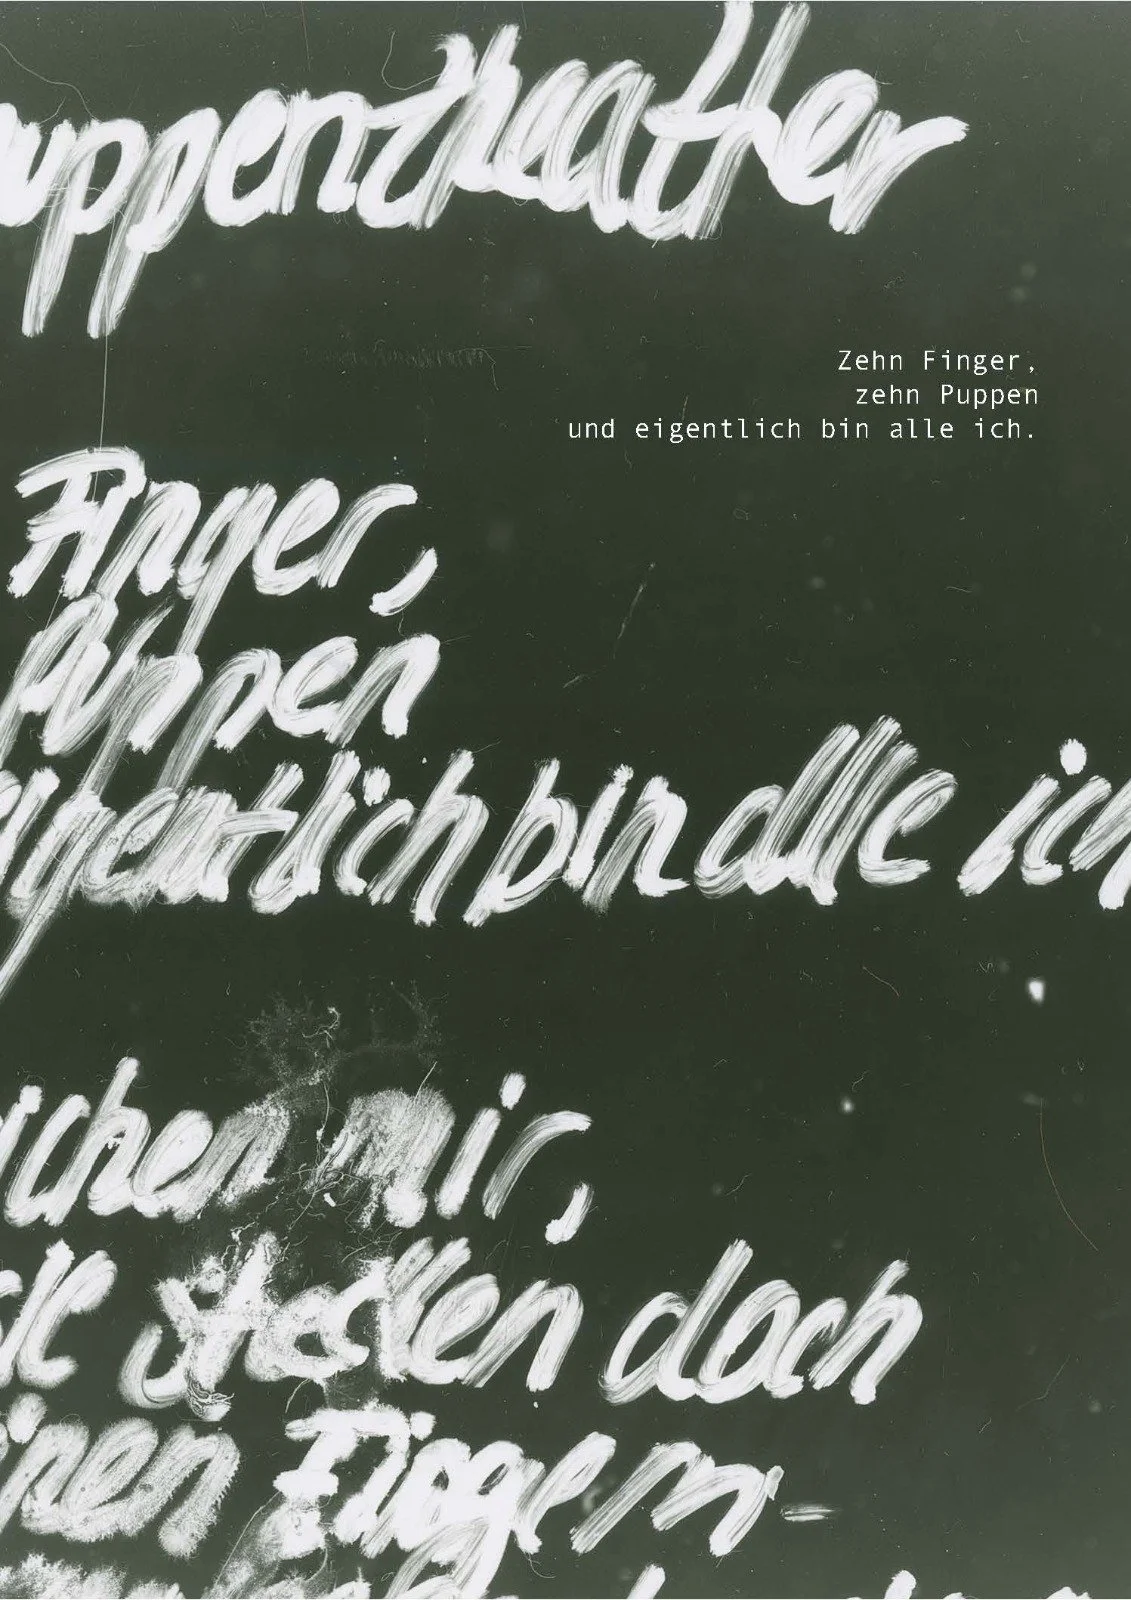 uppentheather
Zehn Finger,
zehn Puppen
und eigentlich bin alle ich.
Finger,
Puppen
eigentlich bin alle ich
ichen mir,
stecken doch
inen Fingern